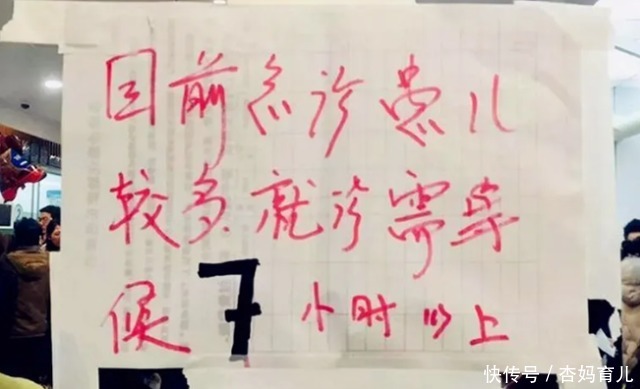 目前急诊患儿
较多,就诊需等
候7小时以上
快传号/杏妈育儿